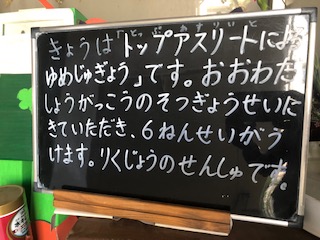 きょうは「トップアスリートによる
ゆめじゅぎょう」です。おおわだ
しょうがっこうのそつぎょうせいに
きていただき、6ねんせいがう
けます。りくじょうのせんしゅです。